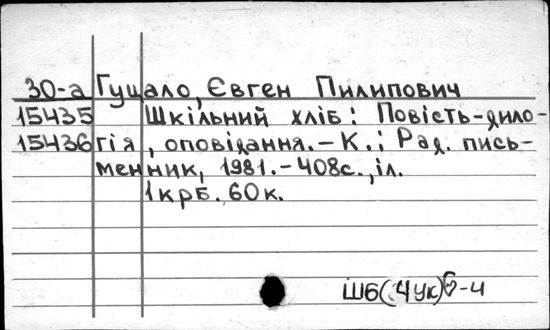 30-а Гуцало, Євген Пилипович
15435 Шкільний хліб: Повість-дило-
15436 гія, оповідання. – К.: Рад. пись-
менник, 1981. – 408с., іл.
1 крб. 60 к.
Ш6(4Ук)